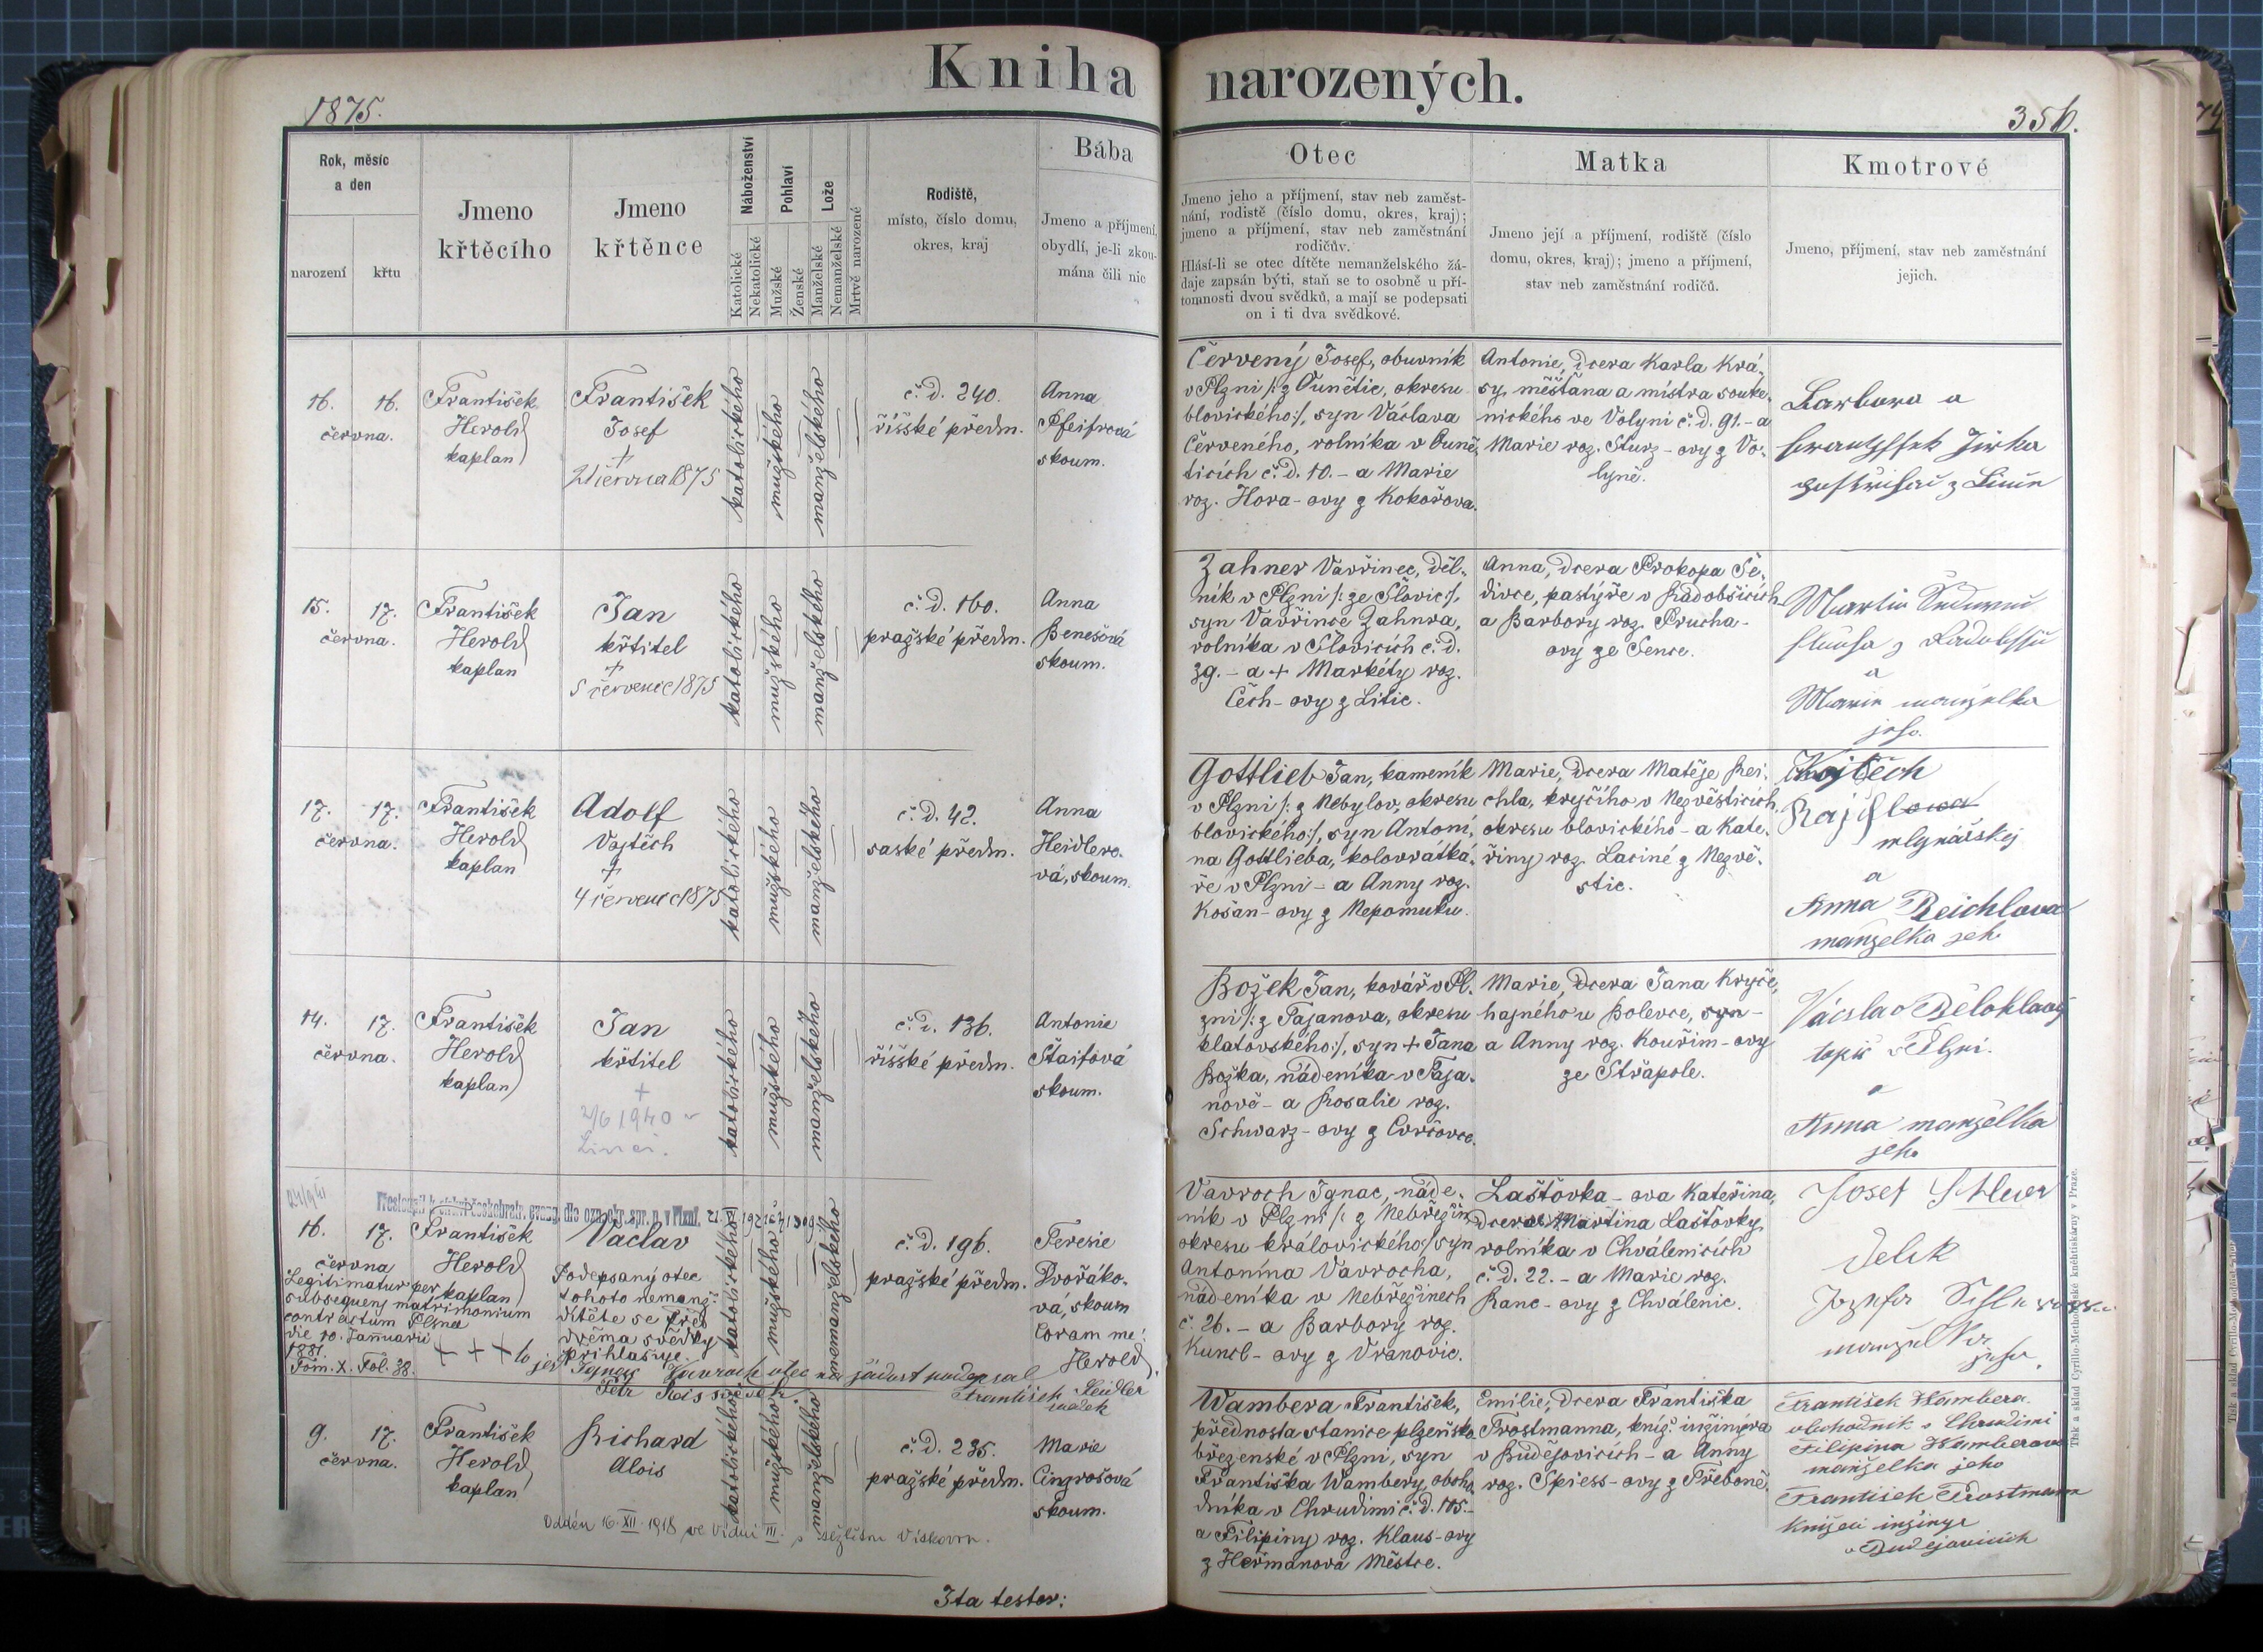 Kniha narozených.
1875.
356.
Rok, měsíc
a den
narození
křtu
Jmeno
křtěcího
Jmeno
křtěnce
Náboženství
Katolické
Nekatolické
Pohlaví
Mužské
Ženské
Lože
Manželské
Nemanželské
Mrtvě narozené
Rodiště,
místo, číslo domu,
okres, kraj
Bába
Jmeno a příjmení,
obydlí, je-li zkou-
mána čili nic
Otec
Jmeno jeho a příjmení, stav neb zaměst-
nání, rodistě (číslo domu, okres, kraj);
jmeno a příjmení, stav neb zaměstnání
rodičův.
Hlásí-li se otec dítěte nemanželského žá-
daje zapsán býti, staň se to osobně u pří-
tomnosti dvou svědků, a mají se podepsati
on i ti dva svědkové.
Matka
Jmeno její a příjmení, rodiště (číslo
domu, okres, kraj); jmeno a příjmení,
stav neb zaměstnání rodičů.
Kmotrové
Jmeno, příjmení, stav neb zaměstnání
jejich.
16. 16.
června.
František
Herold
kaplan
František
Josef
+
2 července 1875
katolického
mužského
manželského
č. d. 240.
říšské předm.
Anna
Pfeifrová
skoum.
Červený Josef, obuvník
v Plzni /: z Ounětic, okresu
blovického :/, syn Václava
Červeného, rolníka v Ouně-
ticích č. d. 10. - a Marie
roz. Hora-ovy z Kokořova.
Antonie, dcera Karla Krá-
sy, měšťana a mistra souke-
nického ve Volyni č. d. 91. - a
Marie roz. Sturz-ovy z Vo-
lyně.
Barbora a
Frantissek Jirka
z
15. 17.
června.
František
Herold
kaplan
Jan
křtitel
+
5 červenec 1875
katolického
mužského
manželského
č. d. 160.
pražské předm.
Anna
Benešová
skoum.
Zahner Vavřinec, děl-
ník v Plzni /: ze Šlovic :/,
syn Vavřince Zahnra,
rolníka v Šlovicích č. d.
39. - a + Markéty roz.
Čech-ovy z Litic.
Anna, dcera Prokopa Še-
divce, pastýře v Radobšicích
a Barbory roz. Prucha-
ovy ze Sence.
Martin
z
a
Marie manželka
jeho.
17. 17.
června.
František
Herold
kaplan
Adolf
Vojtěch
+
4 červenec 1875
katolického
mužského
manželského
č. d. 42.
saské předm.
Anna
Heidlero-
vá, skoum.
Gottlieb Jan, kameník
v Plzni /: z Nebylov, okresu
blovického :/, syn Antoní-
na Gottlieba, kolovrátká-
ře v Plzni - a Anny roz.
Košan-ovy z Nepomuku.
Marie, dcera Matěje Rei-
chla, krejčího v Nezvěsticích,
okresu blovického - a Kate-
řiny roz. Laciné z Nezvě-
stic.
Vojtěch
Rajchlowa
mlynářskej
a
Anna Reichlova
manželka jeh.
14. 17.
června.
František
Herold
kaplan
Jan
křtitel
+
2/6 1940 v
Linci.
katolického
mužského
manželského
č. d. 136.
říšské předm.
Antonie
Štaifová
skoum.
Božek Jan, kovář v Pl-
zni /: z Tajanova, okresu
klatovského :/, syn + Jana
Božka, nádeníka v Taja-
nově - a Rosalie roz.
Schwarz-ovy z Cvrčovce.
Marie, dcera Jana Kryče,
hajného u Bolevce, syn -
a Anny roz. Kouřim-ovy
ze Střapole.
Václav Běloklavý
topič v Plzni.
a
Anna manželka
jeh.
16. 17.
června
František
Herold
kaplan
Václav
Podepsaný otec
tohoto nemanž.
dítěte se před
dvěma svědky
přihlašuje.
Legitimatur per
subsequens matrimonium
contractum Plznae
die 10. Januarii
1881.
Tom. X. Fol. 38.
+ + + to jest Ignac Vavroch otec na žádost podepsal
Petr Rois svědek
František Heidler
svědek
katolického
mužského
nemanželského
č. d. 196.
pražské předm.
Teresie
Dvořáko-
vá, skoum
Coram me:
Herold
Vavroch Ignac, náde-
ník v Plzni /: z Nebřežin
okresu královického :/ syn
Antonína Vavrocha,
nádeníka v Nebřežinech
č. 26. - a Barbory roz.
Kuncl-ovy z Vranovic.
Laštovka-ova Kateřina,
dcera Martina Laštovky,
rolníka v Chválenicích
č. d. 22. - a Marie roz.
Ranc-ovy z Chválenic.
Josef
Jozefa
manželka
jeho.
9. 17.
června.
František
Herold
kaplan
Richard
Alois
katolického
mužského
manželského
č. d. 235.
pražské předm.
Marie
Cingrošová
skoum.
Wambera František,
přednosta stanice plzeňsko
březenské v Plzni, syn
Františka Wambery, obcho-
dníka v Chrudimi č. d. 105. -
a Filipiny roz. Klaus-ovy
z Heřmanova Městce.
Emilie, dcera Františka
Trostmanna, kníž. inžinýra
v Budějovicích - a Anny
roz. Spiess-ovy z Třeboně.
František Wambera
obchodník v Chrudimi
Filipina Wamberova
manželka jeho
František Trostmann
Knížecí inžinýr
v Budějovicích
Oddán 16. XII. 1918 ve Vídni III.
Ita testor:
Tisk a sklad Cyrillo-Methodějské knihtiskárny v Praze.